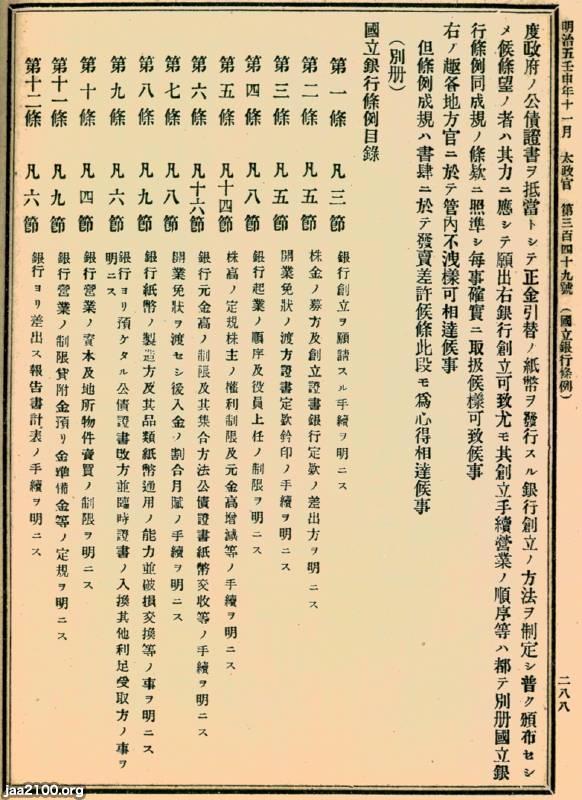 明治五壬申年十一月　太政官　第三百四十九號　（國立銀行條例）
二八八
度政府ノ公債證書ヲ抵當トシテ正金引替ノ紙幣ヲ發行スル銀行創立ノ方法ヲ制定シ普ク頒布セシ
メ候條望ノ者ハ其力ニ應シテ願出右銀行創立可致尤モ其創立手續營業ノ順序等ハ都テ別册國立銀
行條例同成規ノ條欵ニ照準シ每事確實ニ取扱候樣可致候事
右ノ趣各地方官ニ於テ管內不洩樣可相達候事
但條例成規ハ書肆ニ於テ發賣差許候條此段モ爲心得相達候事
（別册）
國立銀行條例目錄
第一條　凡三節　銀行創立ヲ願請スル手續ヲ明ニス
第二條　凡五節　株金ノ募方及創立證書銀行定欵ノ差出方ヲ明ニス
第三條　凡五節　開業免狀ノ渡方證書定欵鈐印ノ手續ヲ明ニス
第四條　凡八節　銀行起業ノ順序及役員上任ノ制限ヲ明ニス
第五條　凡十四節　株高ノ定規株主ノ權利制限及元金高增減等ノ手續ヲ明ニス
第六條　凡十六節　銀行元金高ノ制限及其集合方法公債證書紙幣交收等ノ手續ヲ明ニス
第七條　凡八節　開業免狀ヲ渡セシ後入金ノ割合月賦ノ手續ヲ明ニス
第八條　凡九節　銀行紙幣ノ製造方及其品類紙幣通用ノ能力並破損交換等ノ事ヲ明ニス
第九條　凡六節　銀行ヨリ預ケタル公債證書改方並臨時證書ノ入換其他利足受取方ノ事ヲ
明ニス
第十條　凡四節　銀行營業ノ資本及地所物件賣買ノ制限ヲ明ニス
第十一條　凡九節　銀行營業ノ制限貸附金預リ金準備金等ノ定規ヲ明ニス
第十二條　凡六節　銀行ヨリ差出ス報告書計表ノ手續ヲ明ニス
jaa2100.org